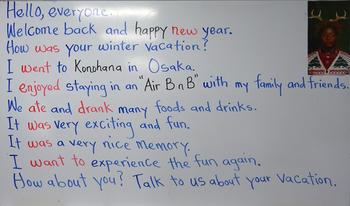 Hello, everyone.
Welcome back and happy new year.
How was your winter vacation?
I went to Konohana in Osaka.
I enjoyed staying in an "Air BnB" with my family and friends.
We ate and drank many foods and drinks.
It was very exciting and fun.
It was a very nice memory.
I want to experience the fun again.
How about you? Talk to us about your vacation.